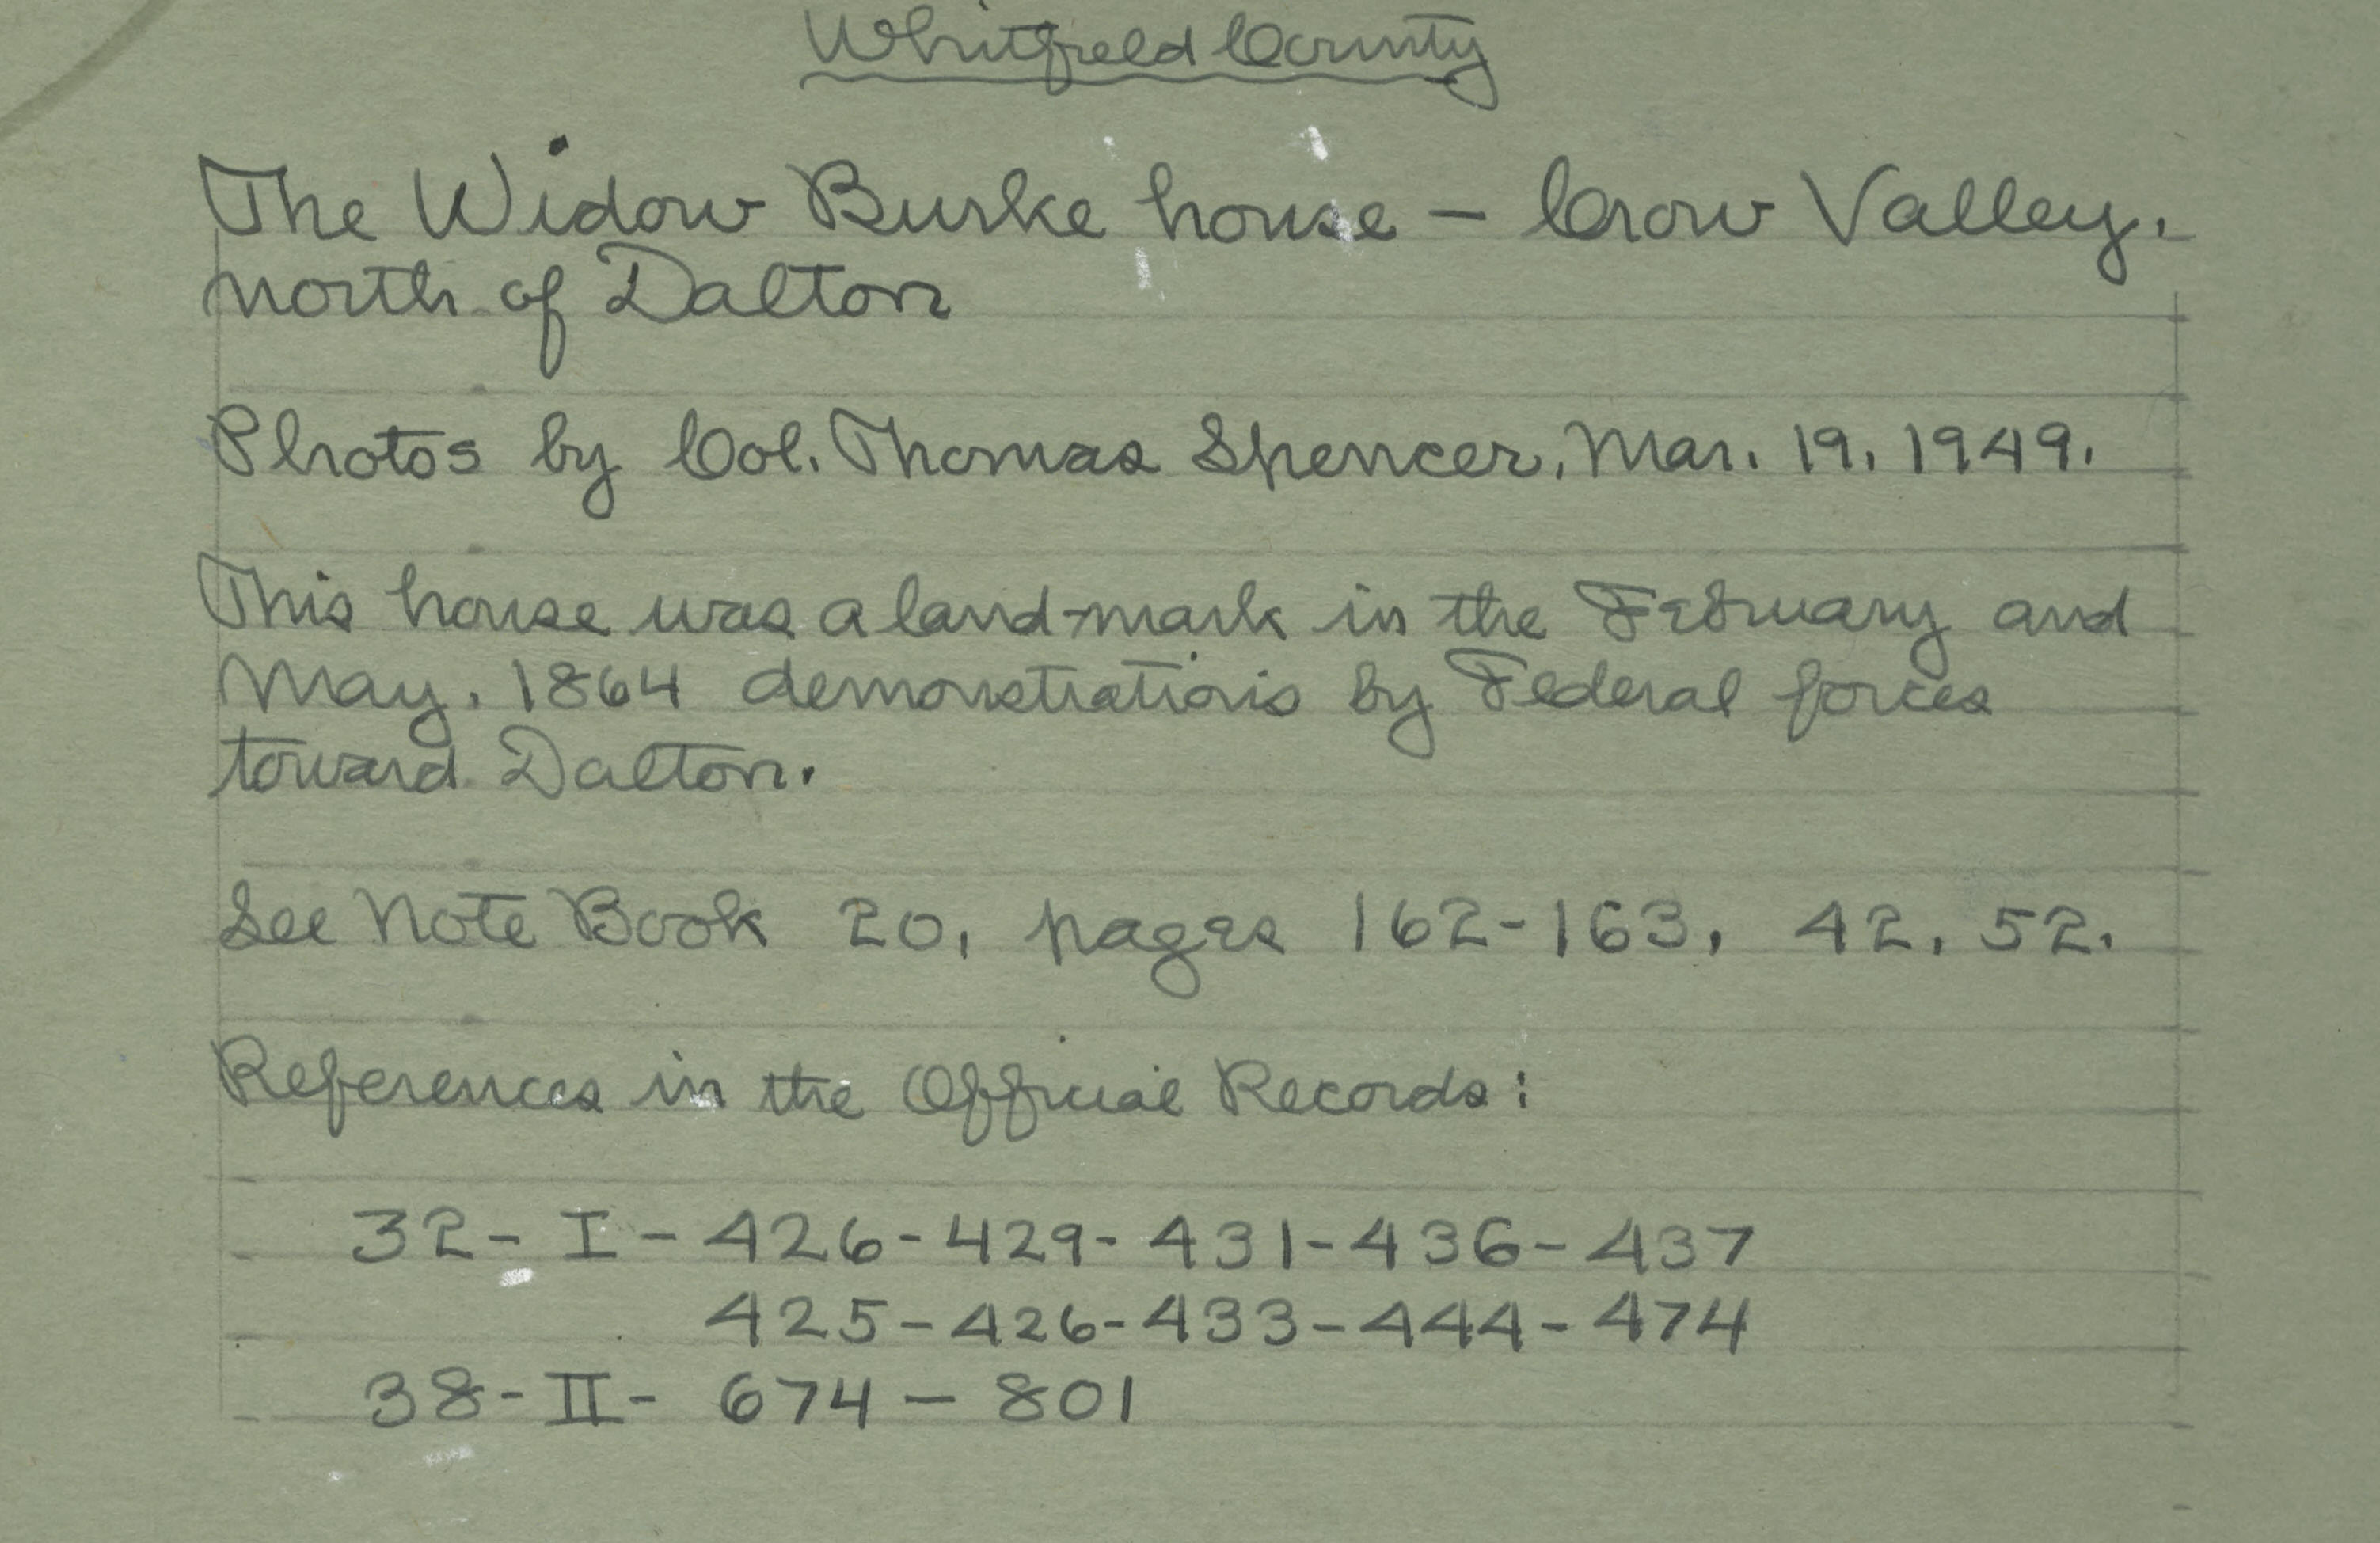 Whitfield County
The Widow Burke house – Crow Valley.
north of Dalton
Photos by Col. Thomas Spencer, Mar. 19, 1949.
This house was a land-mark in the February and
May, 1864 demonstrations by Federal forces
toward Dalton.
See Note Book 20, pages 162-163, 42, 52.
References in the Official Records:
32- I - 426-429-431-436-437
425-426-433-444-474
38-II- 674 – 801